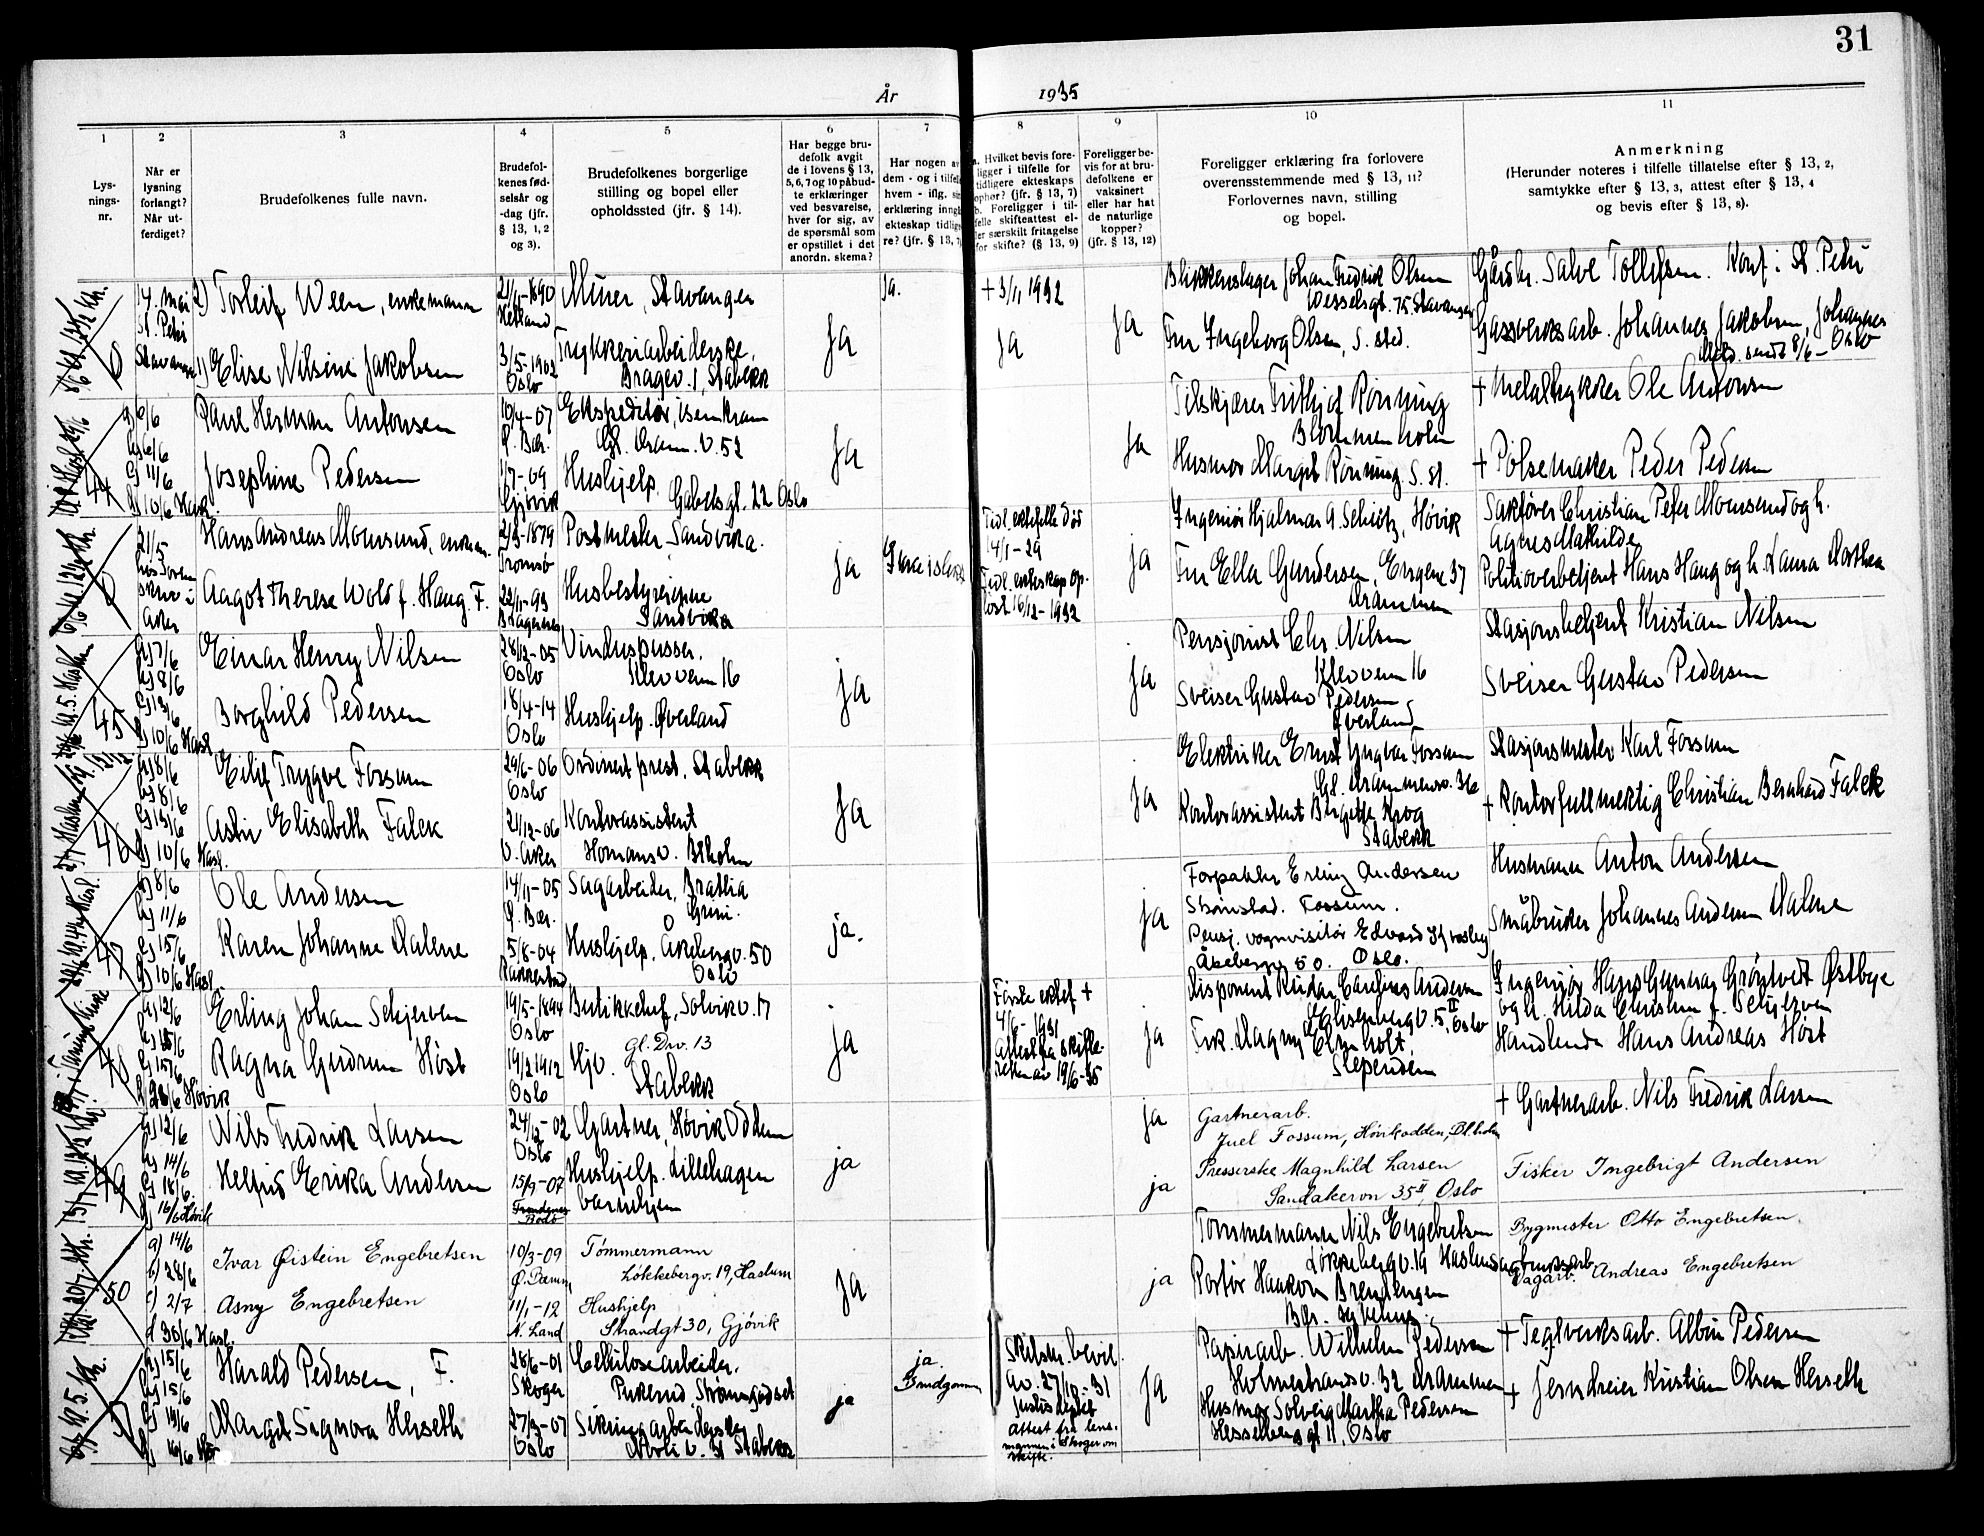 31
År 1935
1
2
3
4
5
6
7
8
9
10
11
Lys-
nings-
nr.
Når er
lysning
forlangt?
Når ut-
ferdiget?
Brudefolkenes fulle navn.
Brudefol-
kenes fød-
selsår og
-dag (jfr.
§ 13, 1, 2
og 3).
Brudefolkenes borgerlige
stilling og bopel eller
opholdssted (jfr. § 14).
Har begge bru-
defolk avgit
de i lovens § 13,
5, 6, 7 og 10 påbud-
te erklæringer
ved besvarelse,
hver for sig, av
de spørsmål som
er opstillet i det
anordn. skema?
Har nogen av
dem - og i tilfelle
hvem - iflg. sin
erklæring inng
ekteskap tidlig
re? (jfr. § 13,
a. Hvilket bevis fore-
ligger i tilfelle for
tidligere ekteskaps
ophør? (jfr. § 13, 7)
b. Foreligger i til-
felle skifteattest el-
ler særskilt fritagelse
for skifte? (§ 13, 9)
Foreligger be-
vis for at bru-
defolkene er
vaksinert
eller har hat
de naturlige
kopper?
(jfr. § 13, 12)
Foreligger erklæring fra forlovere
overensstemmende med § 13, 11?
Forlovernes navn, stilling
og bopel.
Anmerkning
(Herunder noteres i tilfelle tillatelse efter § 13, 2,
samtykke efter § 13, 3, attest efter § 13, 4
og bevis efter § 13, 8).
14. mai
St. Petri
Stavanger
2) Torleif Ween, enkemann
21/11-1890
Hetland
Murer, Stavanger
Ja
Ja.
+ 3/11 1932
Ja
Ja
Blikkenslager Johan Fredrik Olsen
Wesselsgt. 75 Stavanger
Gårdbr. Salve Tollefsen. Konf: St. Petri
1) Elise Nilsine Jakobsen
3/5-1902
Oslo
Trykkeriarbeiderske,
Bragev. 1, Stabekk
Fru Ingeborg Olsen, S. sted.
Gassverksarb. Johannes Jakobsen, Johannes
Meld. sendt 8/6 - Oslo
44
a) 6/6
b) 6/6
c) 11/6
d) 10/6 Hasl.
Paul Herman Antonsen
10/4-07
Ø. Bær.
Ekspeditør, isenkram
Gl. Dram. v. 52
Ja
Ja
Tilskjærer Frithjof Rønning
Blommenholm
+ Metaltrykker Ole Antonsen
Josephine Pedersen
1/7-09
Gjøvik
Hushjelp.
Gabelsgt. 22 Oslo
Husmor Margit Rønning, S. st.
+ Pølsemaker Peder Pedersen
21/5
Aker
Hans Andreas Mousund, enkem.
2/3-1879
Tromsø
Postmester Sandvika.
ja
Tidl. ektefelle død
14/1-29
ja
Ingeniør Hjalmar A. Schiøtz, Høvik
Sakfører Christian Peter Mousund og h.
Agnes Mathilde
Aagot Therese Wold f. Haug. F.
22/11-93
Bragernes
Husbestyrerinne
Sandvika
Tidl. ekteskap op-
løst 16/12-1932
Fru Ella Gundersen, Engene 37
Drammen
Politioverbetjent Hans Haug og h. Laura Dorthea
45
a) 7/6
b) 8/6
c) 13/6
d) 10/6 Hasl.
Einar Henry Nilsen
28/12-05
Oslo
Vinduspusser.
Kleivveien 16
Ja
Ja
Pensjonist Chr. Nilsen
Kleivveien 16
Stasjonsbetjent Kristian Nilsen
Borghild Pedersen
18/4-14
Oslo
Hushjelp. Øverland
Sveiser Gustav Pedersen
Øverland
Sveiser Gustav Pedersen
46
a) 8/6
b) 8/6
c) 13/6
d) 10/6 Hasl.
Eilif Trygve Fossum
29/6-06
Oslo
Ordinert prest, Stabekk
Ja
Ja
Elektriker Ernst Yngvar Fossum
Gl. Drammensv. 36
Stasjonsmester Karl Fossum
Astri Elisabeth Falck
21/12-06
V. Aker
Kontorassistent
Homansv. Blholm
Kontorassistent Birgitte Krog
Stabekk
+ Kontorfullmektig Christian Bernhard Falck
47
a) 8/6
b) 11/6
c) 15/6
d) 10/6 Hasl.
Ole Andersen
14/11-05
Ø. Bær.
Sagarbeider, Brattlia
Grini.
ja.
ja
Forpakter Erling Andersen
Strømstad. Fossum.
Husmann Anton Andersen
Karen Johanne Dalene
5/8-04
Rakkestad
Hushjelp. Åkebergv. 50
Oslo
Pensj. vognvisitør Edvard
Åkebergv 50. Oslo.
Småbruker Johannes Andersen Dalene
48
a) 12/6
c) 15/6
Høvik
Erling Johan Schjerven
19/5-1894
Oslo
Butikksjef, Solvikv. 17
Ja
Første ektef +
4/6-1931
Attest fra skifte-
retten av 19/6-35
ja
Disponent Reidar Andersen
Ekebergv. 5 II, Oslo
Ingeniør Hans Gunnar Grøntvedt Østbye
og h. Hilda Christine f. Schjerven
Ragna Gudrun Høst
19/2 1912
Oslo
Hjv. Gl. Drv. 13
Stabekk
Frk. Dagny Elgholt.
Slependen
Handlende Hans Andreas Høst
49
a) 12/6
b) 14/6
c) 18/6
d) 16/6 Høvik
Nils Fredrik Larsen
24/12-02
Oslo
Gartner, Høvik Odden
ja
ja
Gartnerarb.
Juel Fossum, Høvikodden, Blholm
+ Gartnerarb. Nils Fredrik Larsen
Helfrid Erika Andersen
15/9-07
Bodø
Hushjelp. Lillehagen
barnehjem
ja
Presserske Magnhild Larsen
Sandakervn 35 II, Oslo
Fisker Ingebrigt Andersen
50
a) 14/6
b) 28/6
c) 2/7
d) 30/6 Hasl.
Ivar Øistein Engebretsen
10/3-09
Ø. Bærum
Tømmermann
Løkkebergv. 19, Haslum
Ja
ja
Tømmermann Nils Engebretsen
Løkkebergv. 19 Haslum
Bygmester Otto Engebretsen.
Asny Engebretsen
11/1-12
N. Land
Hushjelp
Strandgt 30, Gjøvik
Portør Haakon Brendengen
Bær. sykehus.
Sagbruksarb.
Dagarb. Andreas Engebretsen
51
a) 15/6
b) 15/6
c) 19/6
d) 16/6 Høv
Harald Pedersen, F.
28/6-01
Skoger
Cellulosearbeider.
Pukerud Strømsgodset
ja
ja.
Brudgommen
Skilsm. bevil.
av. 27/10-31
Justisdeptet
Attest fra lens-
mannen i Skoger om
skifte.
Ja
Papirarb. Wilhelm Pedersen
Holmestrandsv. 32 Drammen
+ Teglverksarb. Albin Pedersen
Margit Signora Hesseth
27/3-07
Oslo
Stabekk
Husmor Solveig Martha Pedersen
Hesselbergsgt 11, Oslo
+ Jerndreier Kristian Olsen Hesseth